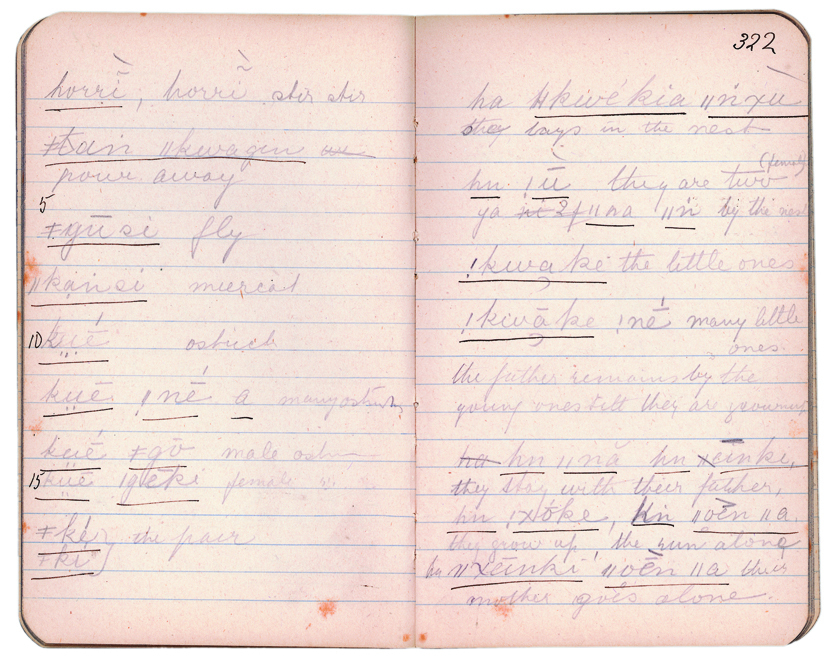 horrĩ̀, horrĩ̀ stir stir
ǂtaiń ǁkwaɡen
pour away
5
ǂgūsi fly
ǁkaṇsi meercat
10 kųé ostrich
kųē ǃnē a many ostrich
kųé ǂgō male
15 kųē ǀgēki female
ǂké the pair
ǂki
322
ha ǁkwé kia ǁńxu
they lays in the nest
hn ǃū̀ they are two (female)
ya ǁna ǁń by the nest
ǃkwa ke the little ones
ǃkwāke ǃné many little
ones.
the father remains by the
young ones till they are growing
ha hn ǁnā hn xēinki,
they stay with their father,
hn ǃxóke, hn ǁoēn ǁa.
they grow up, the run alone
hn ǁxēinki ǁoēn ǁa their
mother goes alone.